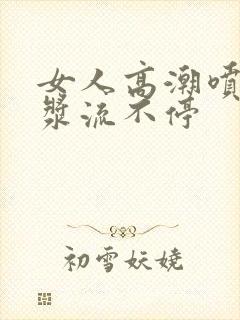 女人高潮喷
浆流不停
初雪妖娆